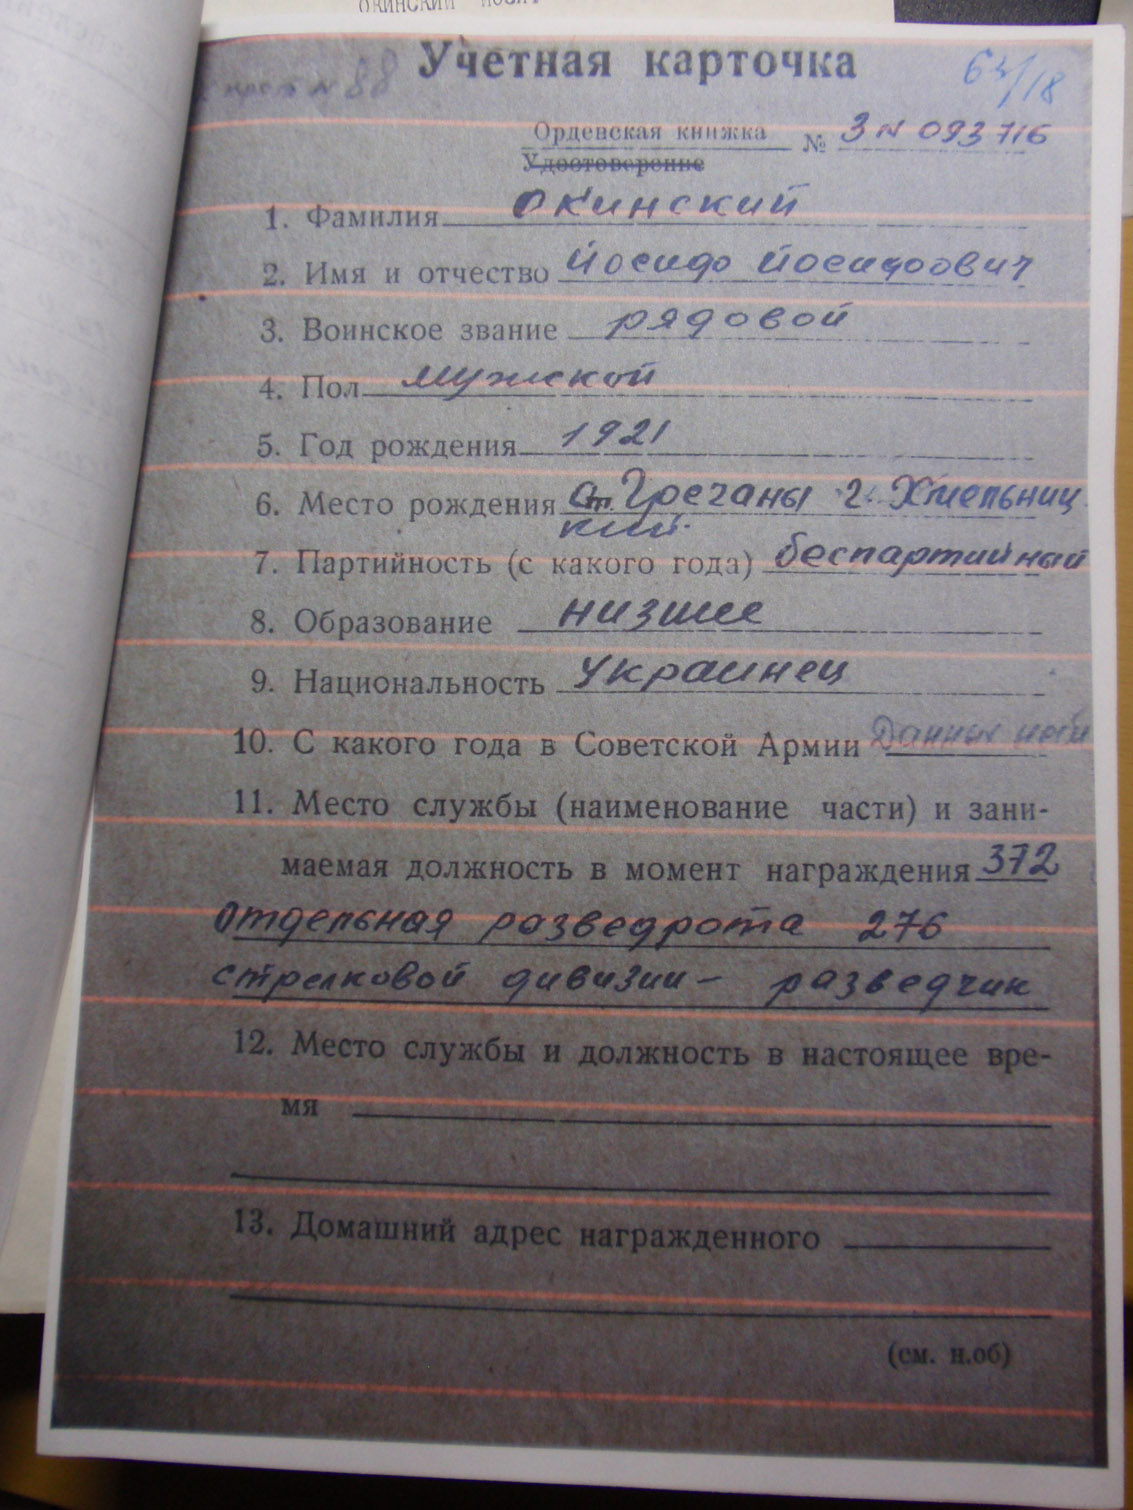 Учетная карточка
63/18
№ 88
Орденская книжка
Удостоверение
№ 3 № 093716
1. Фамилия Окинский
2. Имя и отчество Йосифо Йосифович
3. Воинское звание рядовой
4. Пол мужской
5. Год рождения 1921
6. Место рождения ст. Гречаны г. Хмельниц
кий.
7. Партийность (с какого года) беспартийный
8. Образование низшее
9. Национальность украинец
10. С какого года в Советской Армии Данных
11. Место службы (наименование части) и зани-
маемая должность в момент награждения 372
отдельная разведрота 276
стрелковой дивизии – разведчик
12. Место службы и должность в настоящее вре-
мя
13. Домашний адрес награжденного
(см. н.об)